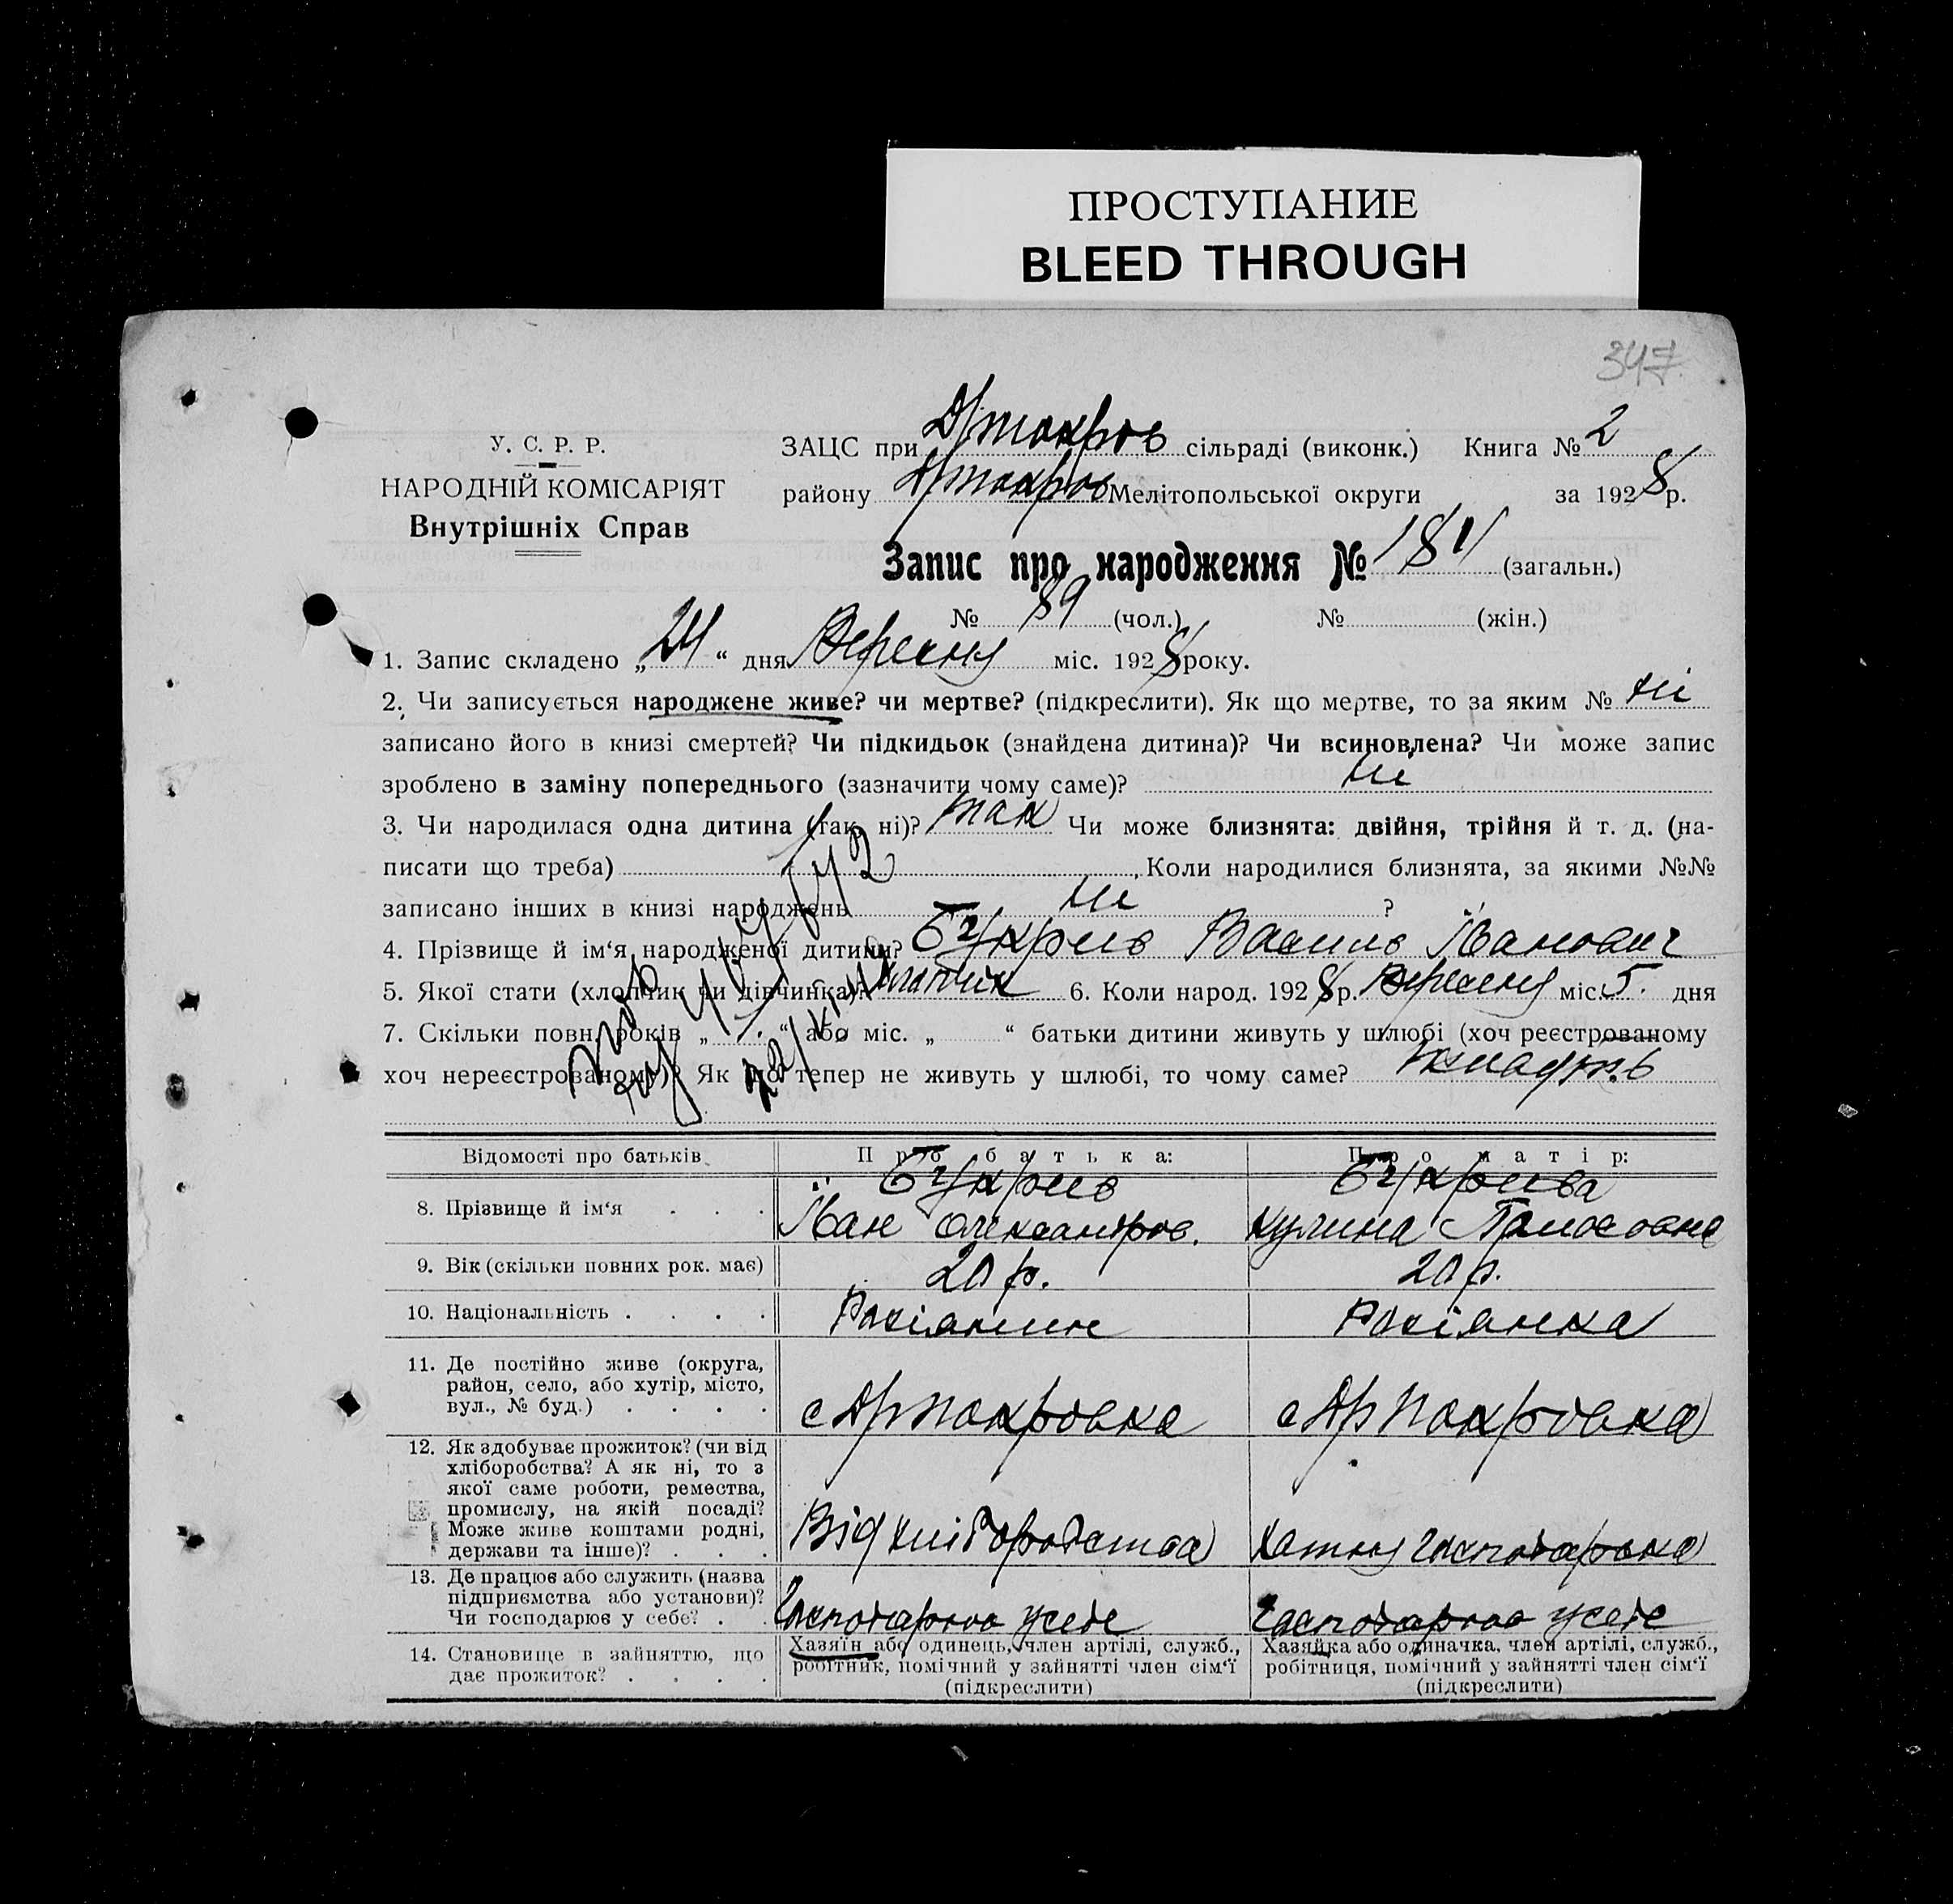 ПРОСТУПАНИЕ
BLEED THROUGH
347
У. С. Р. Р.
НАРОДНІЙ КОМІСАРІЯТ
Внутрішніх Справ
ЗАЦС при сільраді (виконк.) Книга № 2
району Мелітопольської округи за 1928 р.
Запис про народження № 181 (загальн.)
№ 89 (чол.) № (жін.)
1. Запис складено „24“ дня Вересня міс. 1928 року.
2. Чи записується народжене живе? чи мертве? (підкреслити). Як що мертве, то за яким № ні
записано його в книзі смертей? Чи підкидьок (знайдена дитина)? Чи всиновлена? Чи може запис
зроблено в заміну попереднього (зазначити чому саме)? ні
3. Чи народилася одна дитина (так, ні)? так Чи може близнята: двійня, трійня й т. д. (на-
писати що треба) , Коли народилися близнята, за якими №№
записано інших в книзі народжень ні ?
4. Прізвище й ім'я народженої дитини? Василь Іванович
5. Якої стати (хлопчик чи дівчинка)? 6. Коли народ. 1928 р. Вересня міс. 5. дня
7. Скільки повн. років „1.“ або міс. „ “ батьки дитини живуть у шлюбі (хоч реєстрованому
хоч нереєстрованому)? Як що тепер не живуть у шлюбі, то чому саме?
Відомості про батьків Про батька: Про матір:
8. Прізвище й ім‘я . . .
Іван Олександров.
9. Вік (скільки повних рок. має) 20 р. 20 р.
10. Національність . . . . Росіянин Росіянка
11. Де постійно живе (округа,
район, село, або хутір, місто,
вул., № буд.) . . . .
12. Як здобуває прожиток? (чи від
хліборобства? А як ні, то з
якої саме роботи, ремества,
промислу, на якій посаді?
Може живе коштами родні,
держави та інше)? . . .
Від хліборобства Хатня господарка
13. Де працює або служить (назва
підприємства або установи)?
Чи господарює у себе? . .
Господарює у себе Господарює у себе
14. Становище в зайняттю, що
дає прожиток? . . . .
Хазяїн або одинець, член артілі, служб.,
робітник, помічний у зайнятті член сім‘ї
(підкреслити)
Хазяйка або одиначка, член артілі, служб.,
робітниця, помічний у зайнятті член сім‘ї
(підкреслити)